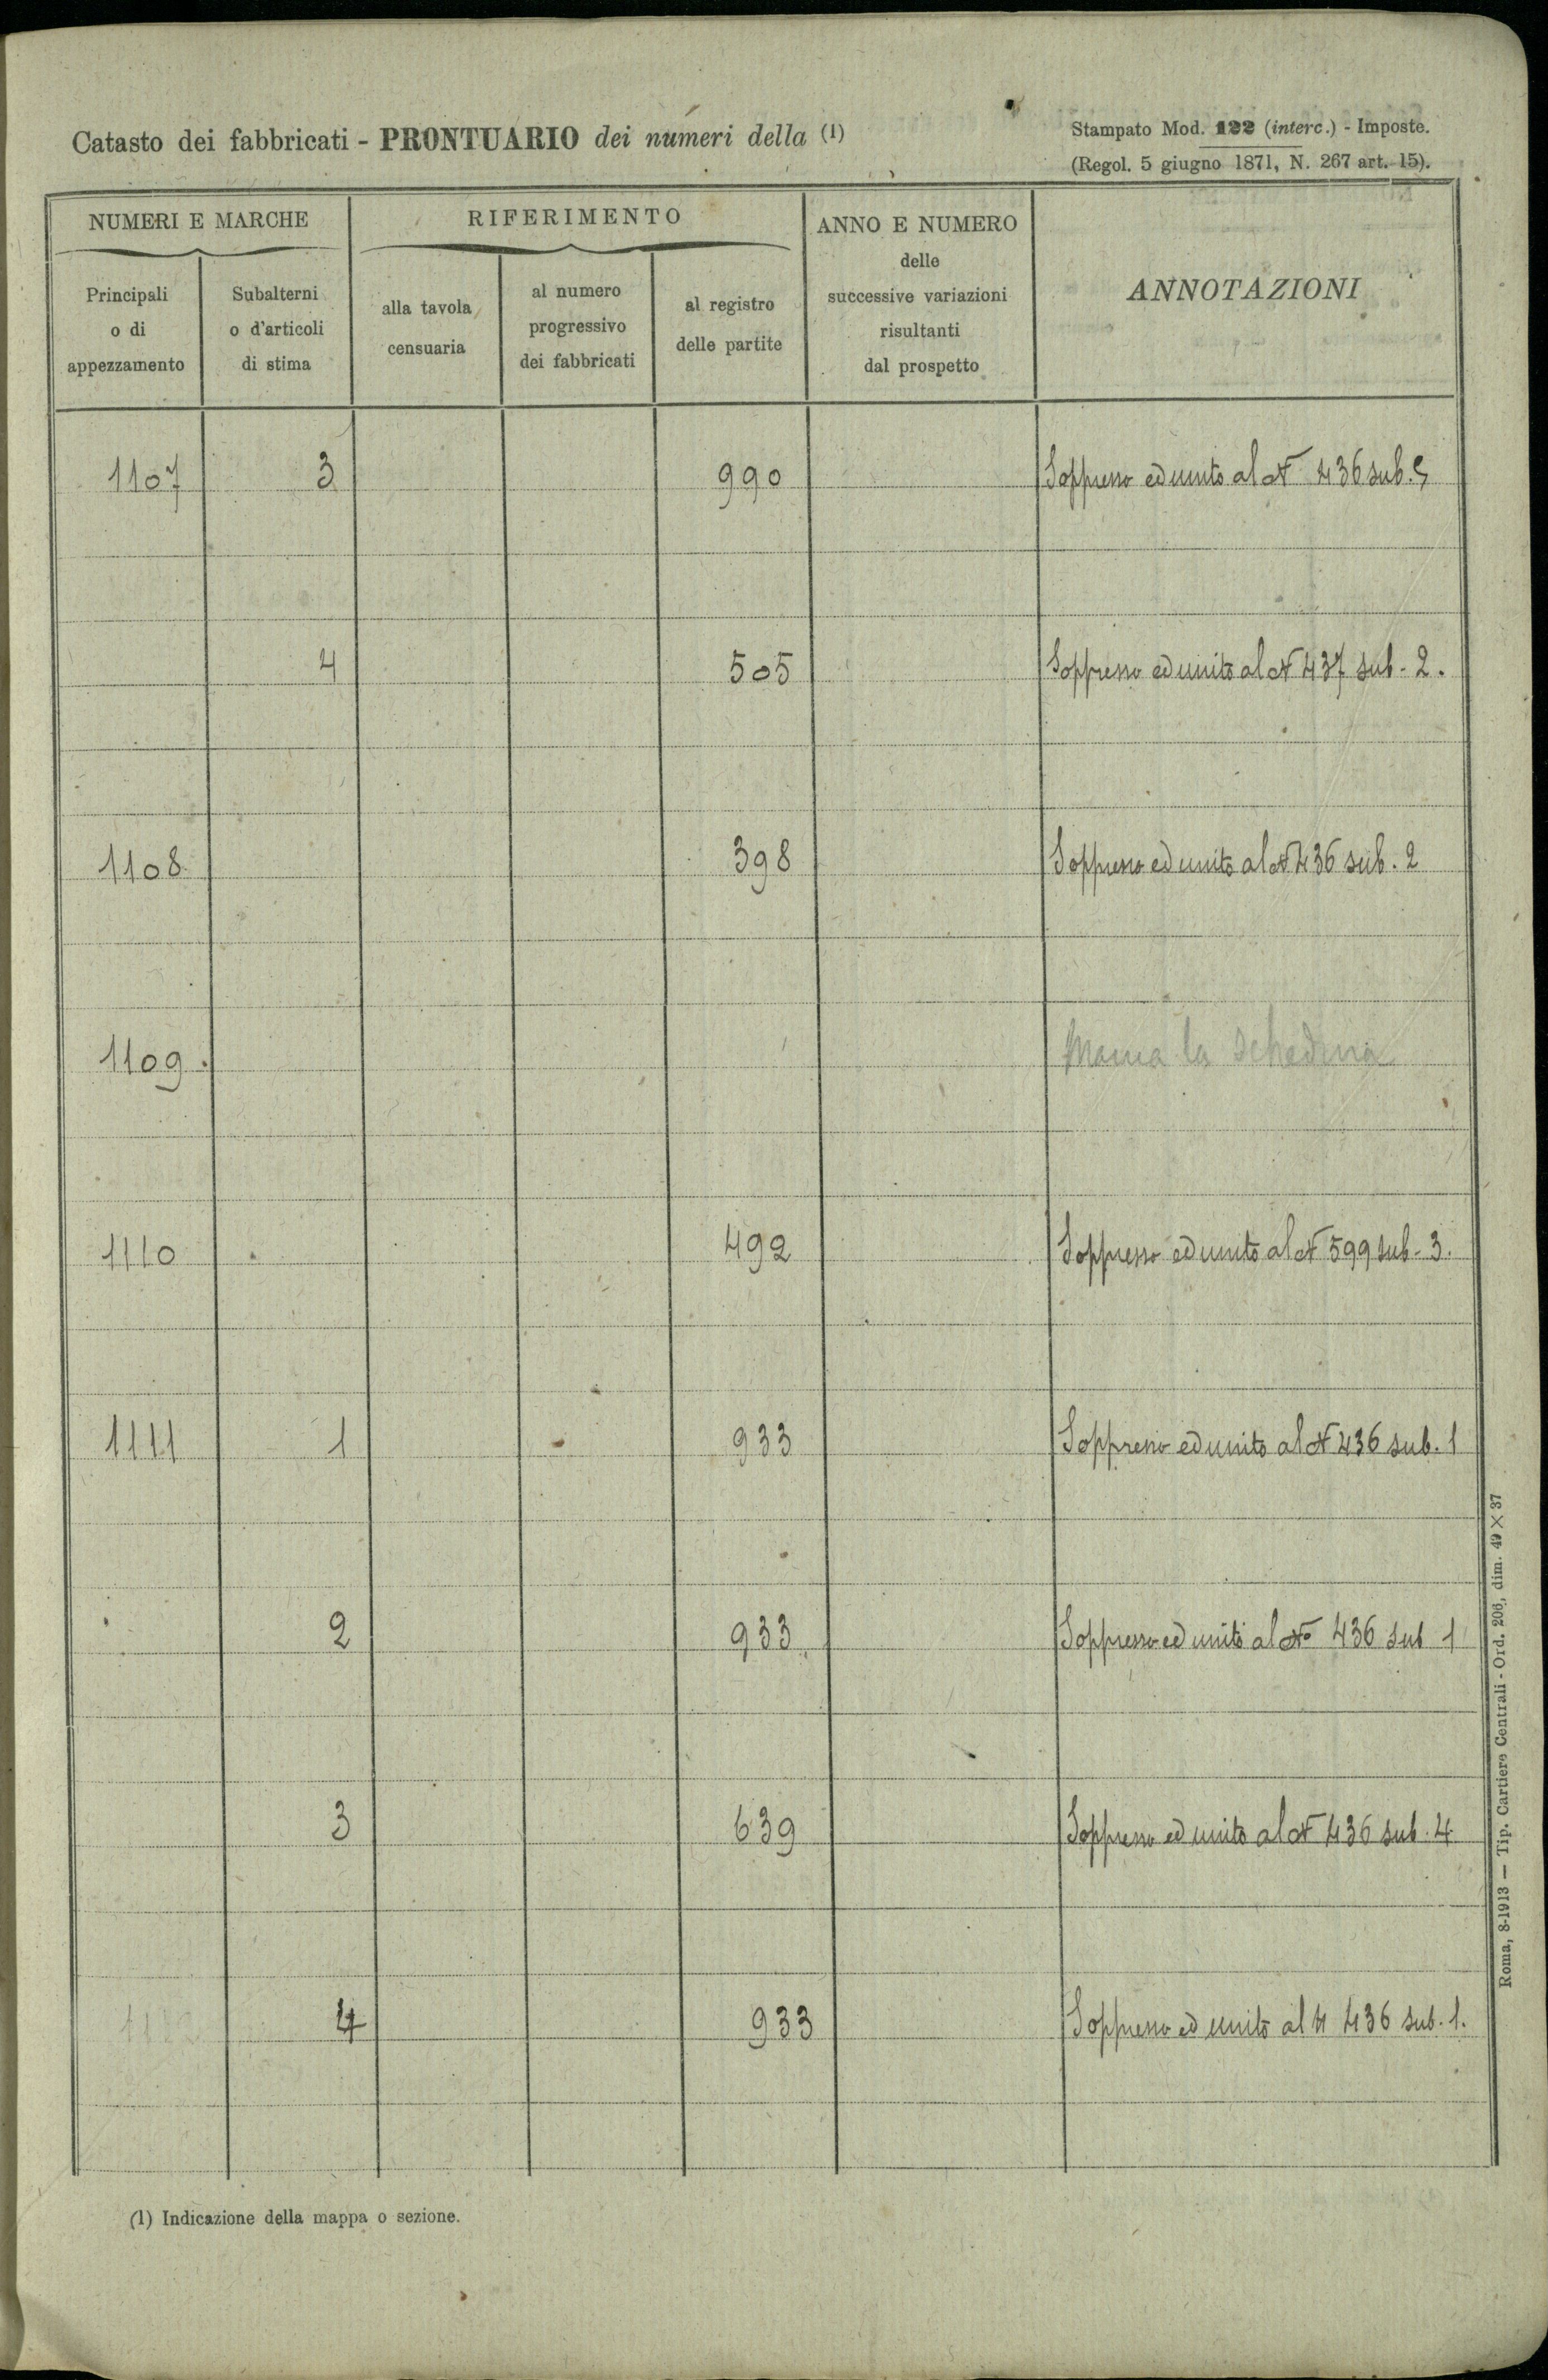 Catasto dei fabbricati - PRONTUARIO dei numeri della (1)
Stampato Mod. 122 (interc.) - Imposte.
(Regol. 5 giugno 1871, N. 267 art. 15).
NUMERI E MARCHE
RIFERIMENTO
ANNO E NUMERO
delle
successive variazioni
risultanti
dal prospetto
ANNOTAZIONI
Principali
o di
appezzamento
Subalterni
o d'articoli
di stima
alla tavola
censuaria
al numero
progressivo
dei fabbricati
al registro
delle partite
1107 3 990 Soppresso ed unito al N 436 sub. 5
4 505 Soppresso ed unito al N 437 sub - 2.
1108 398 Soppresso ed unito al N 436 sub. 2
1109. Manca la schedina
1110 492 Soppresso ed unito al N 599 sub - 3.
1111 1 933 Soppresso ed unito al N 436 sub. 1
2 933 Soppresso ed unito al No 436 sub 1
3 639 Soppresso ed unito al N 436 sub. 4
4 933 Soppresso ed unito al N 436 sub. 1.
(1) Indicazione della mappa o sezione.
Roma, 8-1913 — Tip. Cartiere Centrali - Ord. 206, dim. 49 × 37